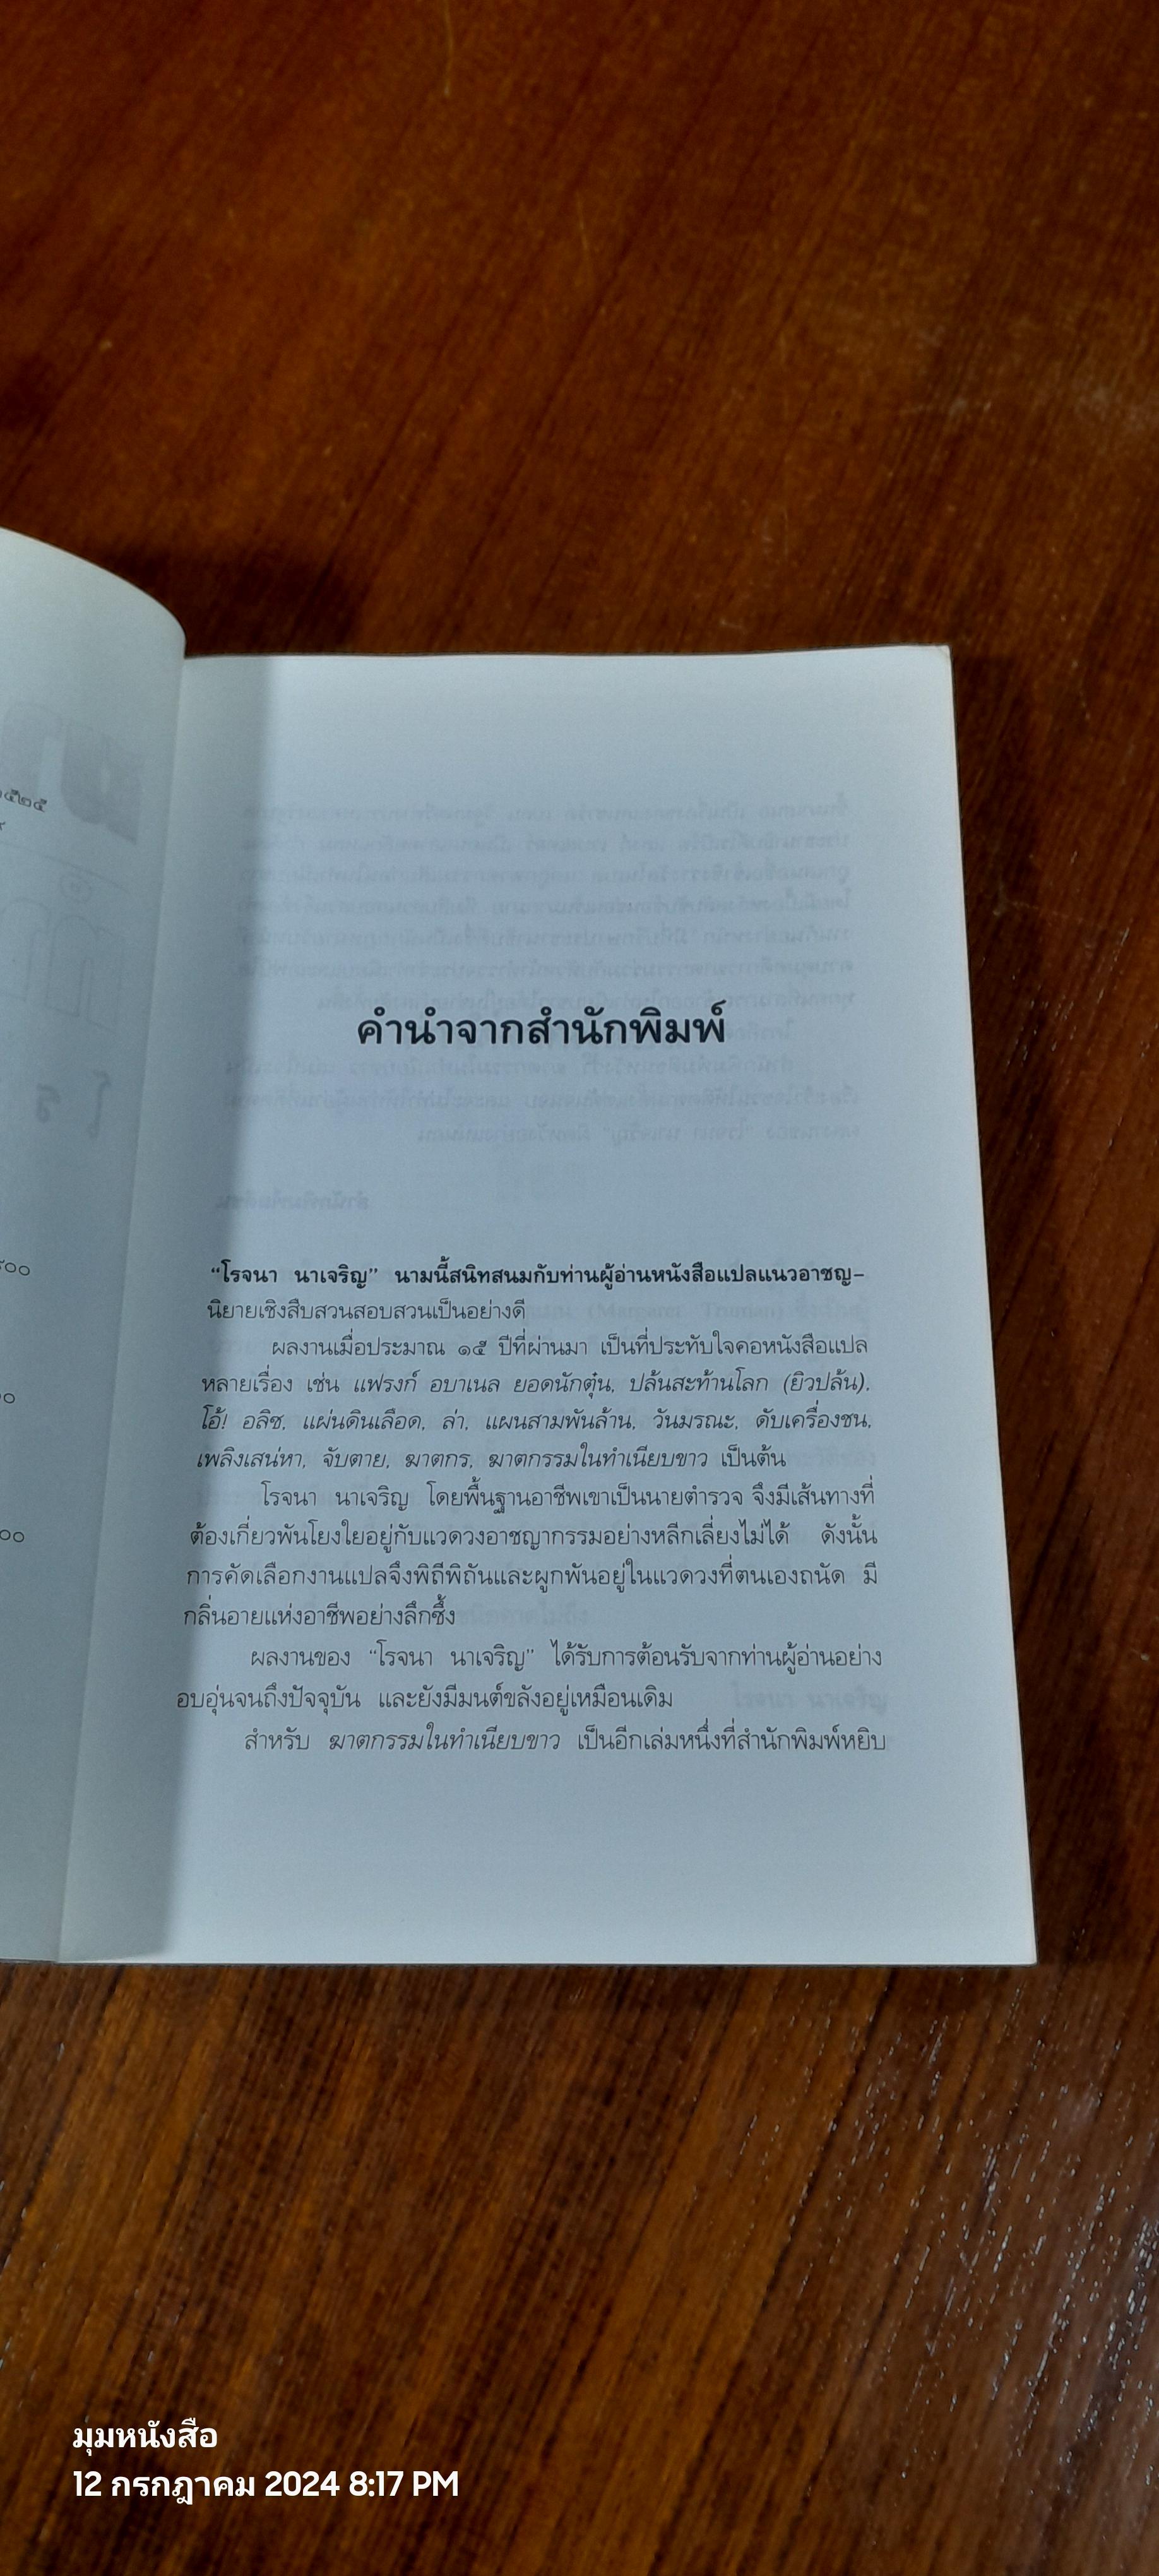 คำนำจากสำนักพิมพ์
“โรจนา นาเจริญ” นามนี้สนิทสนมกับท่านผู้อ่านหนังสือแปลแนวอาชญ-
นิยายเชิงสืบสวนสอบสวนเป็นอย่างดี
ผลงานเมื่อประมาณ ๑๕ ปีที่ผ่านมา เป็นที่ประทับใจคอหนังสือแปล
หลายเรื่อง เช่น แฟรงก์ อบาเนล ยอดนักตุ๋น, ปล้นสะท้านโลก (ยิวปล้น),
โอ้! อลิซ, แผ่นดินเลือด, ล่า, แผนสามพันล้าน, วันมรณะ, ดับเครื่องชน,
เพลิงเสน่หา, จับตาย, ฆาตกร, ฆาตกรรมในทำเนียบขาว เป็นต้น
โรจนา นาเจริญ โดยพื้นฐานอาชีพเขาเป็นนายตำรวจ จึงมีเส้นทางที่
ต้องเกี่ยวพันโยงใยอยู่กับแวดวงอาชญากรรมอย่างหลีกเลี่ยงไม่ได้ ดังนั้น
การคัดเลือกงานแปลจึงพิถีพิถันและผูกพันอยู่ในแวดวงที่ตนเองถนัด มี
กลิ่นอายแห่งอาชีพอย่างลึกซึ้ง
ผลงานของ “โรจนา นาเจริญ” ได้รับการต้อนรับจากท่านผู้อ่านอย่าง
อบอุ่นจนถึงปัจจุบัน และยังมีมนต์ขลังอยู่เหมือนเดิม
สำหรับ ฆาตกรรมในทำเนียบขาว เป็นอีกเล่มหนึ่งที่สำนักพิมพ์หยิบ
มุมหนังสือ
12 กรกฎาคม 2024 8:17 PM